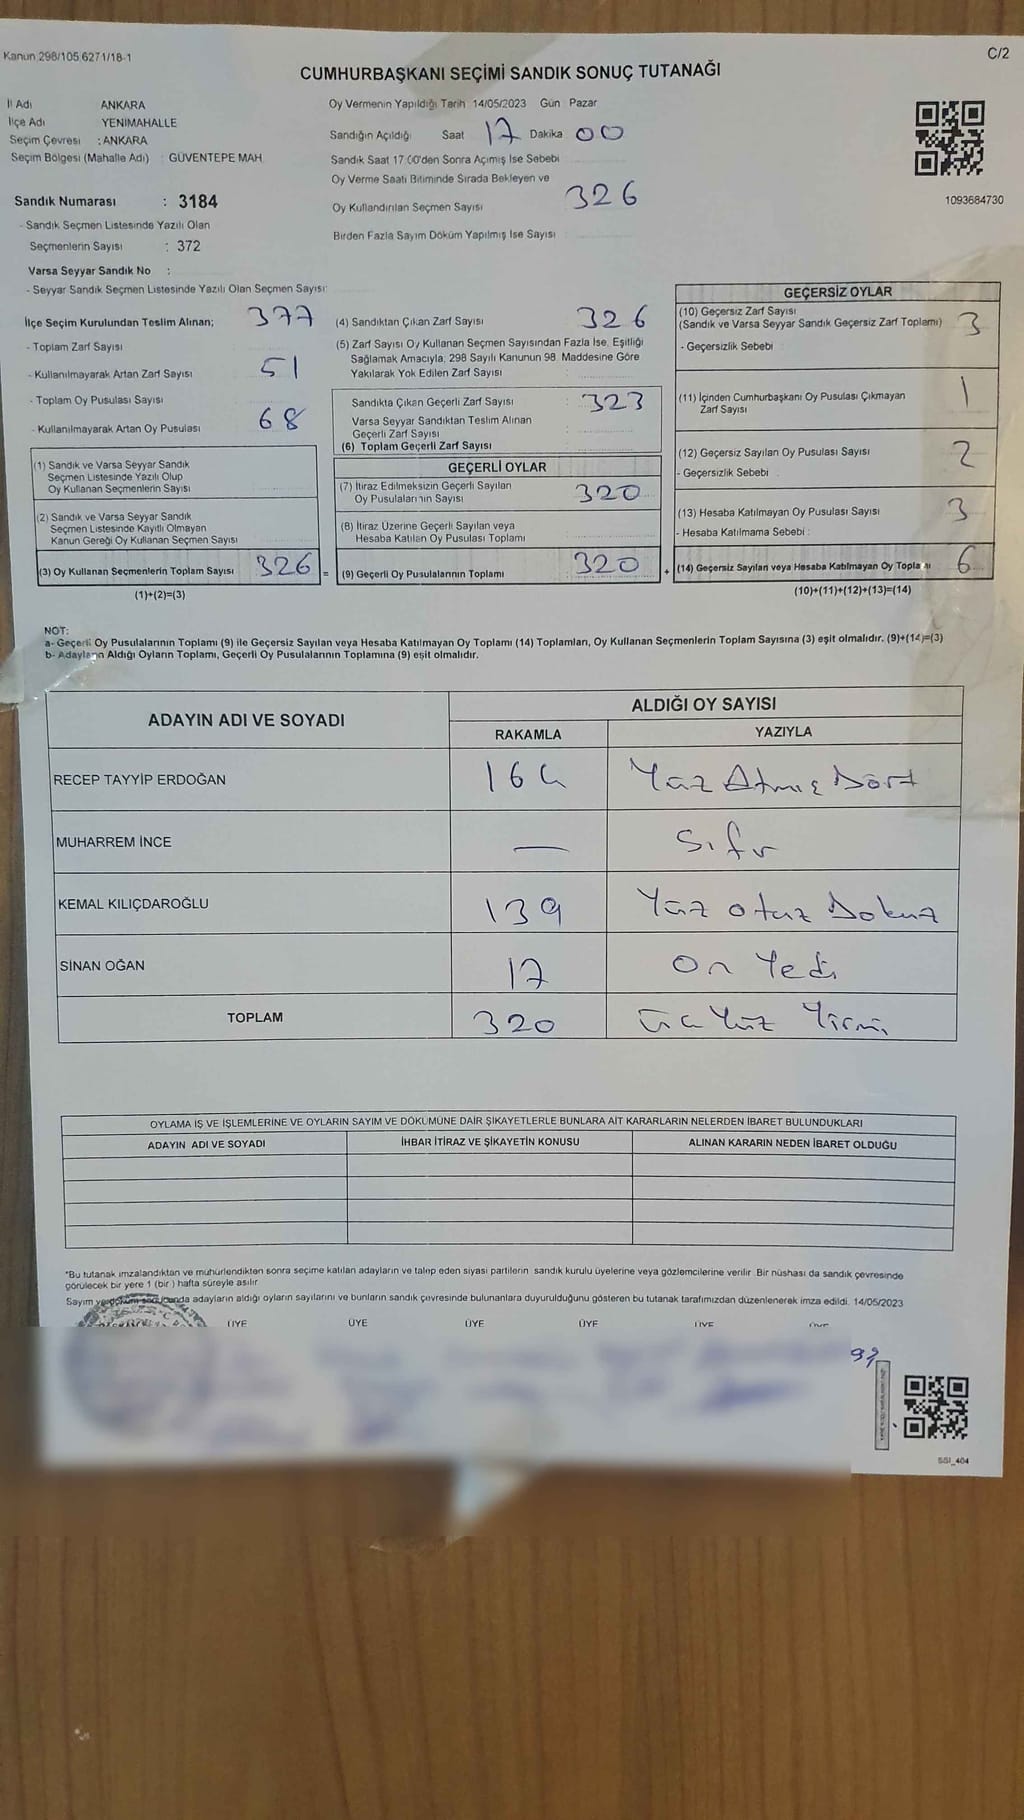 Kanun 298/105 6271/18-1
C/2
CUMHURBAŞKANI SEÇİMİ SANDIK SONUÇ TUTANAĞI
İl Adı ANKARA
İlçe Adı YENİMAHALLE
Seçim Çevresi : ANKARA
Seçim Bölgesi (Mahalle Adı) : GÜVENTEPE MAH.
Oy Vermenin Yapıldığı Tarih 14/05/2023 Gün Pazar
Sandığın Açıldığı Saat 17 Dakika 00
Sandık Saat 17:00'den Sonra Açımış İse Sebebi
Oy Verme Saati Bitiminde Sırada Bekleyen ve
Oy Kullandırılan Seçmen Sayısı 326
Birden Fazla Sayım Döküm Yapılmış İse Sayısı :
1093684730
Sandık Numarası : 3184
- Sandık Seçmen Listesinde Yazılı Olan
Seçmenlerin Sayısı : 372
Varsa Seyyar Sandık No :
- Seyyar Sandık Seçmen Listesinde Yazılı Olan Seçmen Sayısı:
İlçe Seçim Kurulundan Teslim Alınan; 377
- Toplam Zarf Sayısı
- Kullanılmayarak Artan Zarf Sayısı 51
- Toplam Oy Pusulası Sayısı
- Kullanılmayarak Artan Oy Pusulası 68
(1) Sandık ve Varsa Seyyar Sandık
Seçmen Listesinde Yazılı Olup
Oy Kullanan Seçmenlerin Sayısı
(2) Sandık ve Varsa Seyyar Sandık
Seçmen Listesinde Kayıtlı Olmayan
Kanun Gereği Oy Kullanan Seçmen Sayısı
(3) Oy Kullanan Seçmenlerin Toplam Sayısı 326 =
(1)+(2)=(3)
(4) Sandıktan Çıkan Zarf Sayısı 326
(5) Zarf Sayısı Oy Kullanan Seçmen Sayısından Fazla İse, Eşitliği
Sağlamak Amacıyla; 298 Sayılı Kanunun 98. Maddesine Göre
Yakılarak Yok Edilen Zarf Sayısı :
Sandıkta Çıkan Geçerli Zarf Sayısı : 323
Varsa Seyyar Sandıktan Teslim Alınan
Geçerli Zarf Sayısı :
(6) Toplam Geçerli Zarf Sayısı
GEÇERLİ OYLAR
(7) İtiraz Edilmeksizin Geçerli Sayılan
Oy Pusulalarının Sayısı 320
(8) İtiraz Üzerine Geçerli Sayılan veya
Hesaba Katılan Oy Pusulası Toplamı
(9) Geçerli Oy Pusulalarının Toplamı 320 +
GEÇERSİZ OYLAR
(10) Geçersiz Zarf Sayısı
(Sandık ve Varsa Seyyar Sandık Geçersiz Zarf Toplamı) 3
- Geçersizlik Sebebi
(11) İçinden Cumhurbaşkanı Oy Pusulası Çıkmayan
Zarf Sayısı 1
(12) Geçersiz Sayılan Oy Pusulası Sayısı 2
- Geçersizlik Sebebi :
(13) Hesaba Katılmayan Oy Pusulası Sayısı 3
- Hesaba Katılmama Sebebi :
(14) Geçersiz Sayılan veya Hesaba Katılmayan Oy Toplamı 6
(10)+(11)+(12)+(13)=(14)
NOT:
a- Geçerli Oy Pusulalarının Toplamı (9) ile Geçersiz Sayılan veya Hesaba Katılmayan Oy Toplamı (14) Toplamları, Oy Kullanan Seçmenlerin Toplam Sayısına (3) eşit olmalıdır. (9)+(14)=(3)
b- Adayların Aldığı Oyların Toplamı, Geçerli Oy Pusulalarının Toplamına (9) eşit olmalıdır.
ADAYIN ADI VE SOYADI ALDIĞI OY SAYISI
RAKAMLA YAZIYLA
RECEP TAYYİP ERDOĞAN 164 Yüz Atmış Dört
MUHARREM İNCE — Sıfır
KEMAL KILIÇDAROĞLU 139 Yüz otuz Dokuz
SİNAN OĞAN 17 On Yedi
TOPLAM 320 Üç Yüz Yirmi
OYLAMA İŞ VE İŞLEMLERİNE VE OYLARIN SAYIM VE DÖKÜMÜNE DAİR ŞİKAYETLERLE BUNLARA AİT KARARLARIN NELERDEN İBARET BULUNDUKLARI
ADAYIN ADI VE SOYADI İHBAR İTİRAZ VE ŞİKAYETİN KONUSU ALINAN KARARIN NEDEN İBARET OLDUĞU
*Bu tutanak imzalandıktan ve mühürlendikten sonra seçime katılan adayların ve talep eden siyasi partilerin sandık kurulu üyelerine veya gözlemcilerine verilir. Bir nüshası da sandık çevresinde
görülecek bir yere 1 (bir ) hafta süreyle asılır.
Sayım ve döküm sonucunda adayların aldığı oyların sayılarını ve bunların sandık çevresinde bulunanlara duyurulduğunu gösteren bu tutanak tarafımızdan düzenlenerek imza edildi. 14/05/2023
ÜYE ÜYE ÜYE ÜYE ÜYE ÜYE
SSI_404